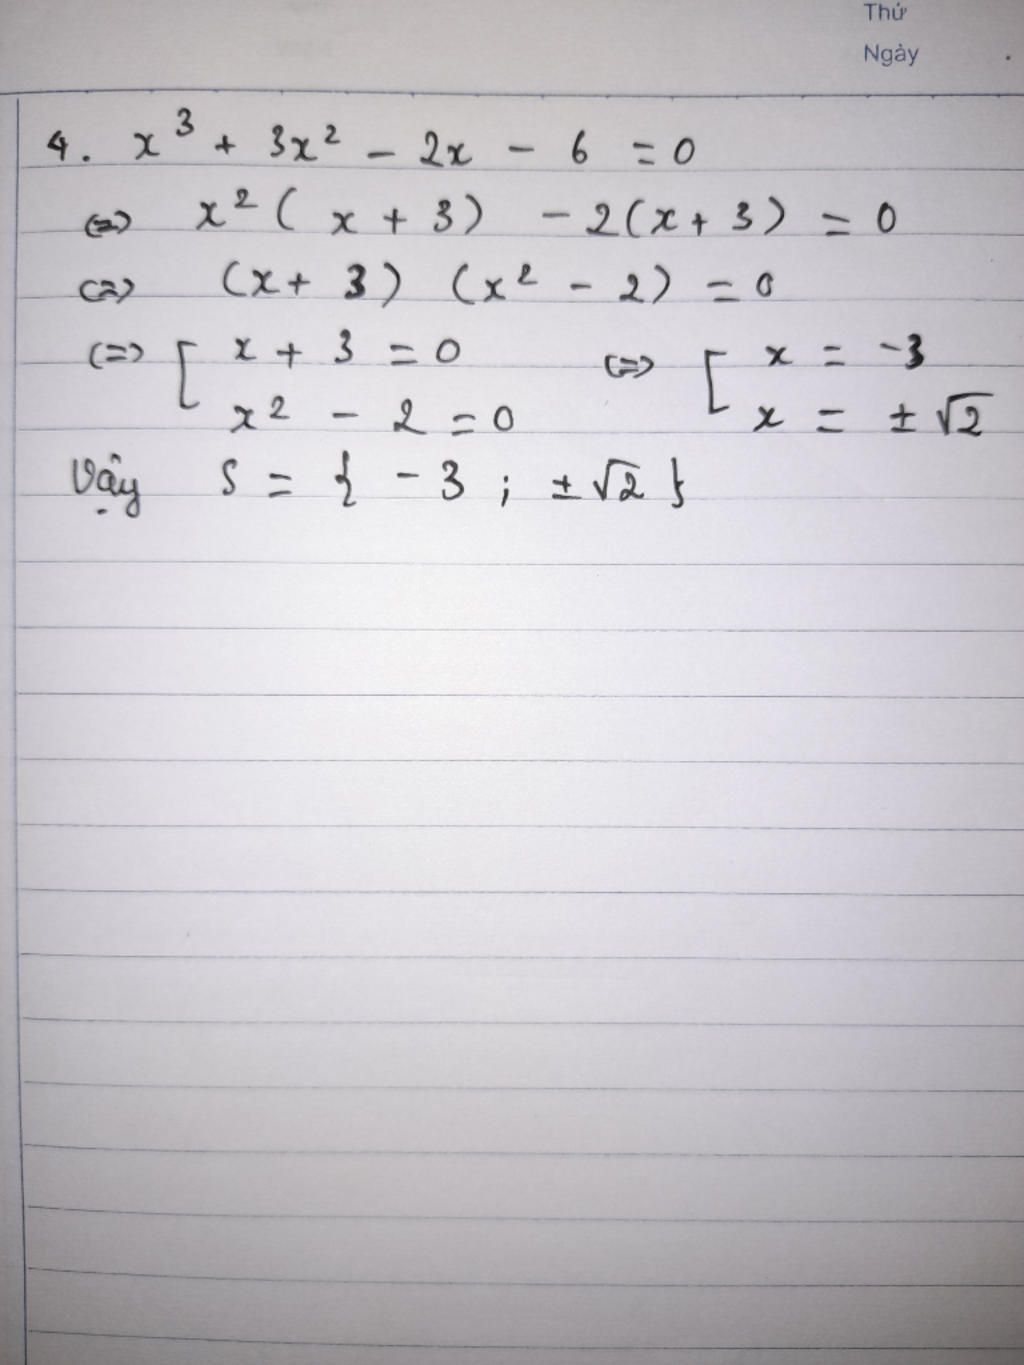 Thứ
Ngày
4. x³ + 3x² - 2x - 6 = 0
(=) x² ( x + 3) - 2(x + 3) = 0
(=) (x + 3) (x² - 2) = 0
(=> [ x + 3 = 0 (=> [ x = -3
x² - 2 = 0 x = ± √2
Vậy S = { - 3 ; ± √2 }